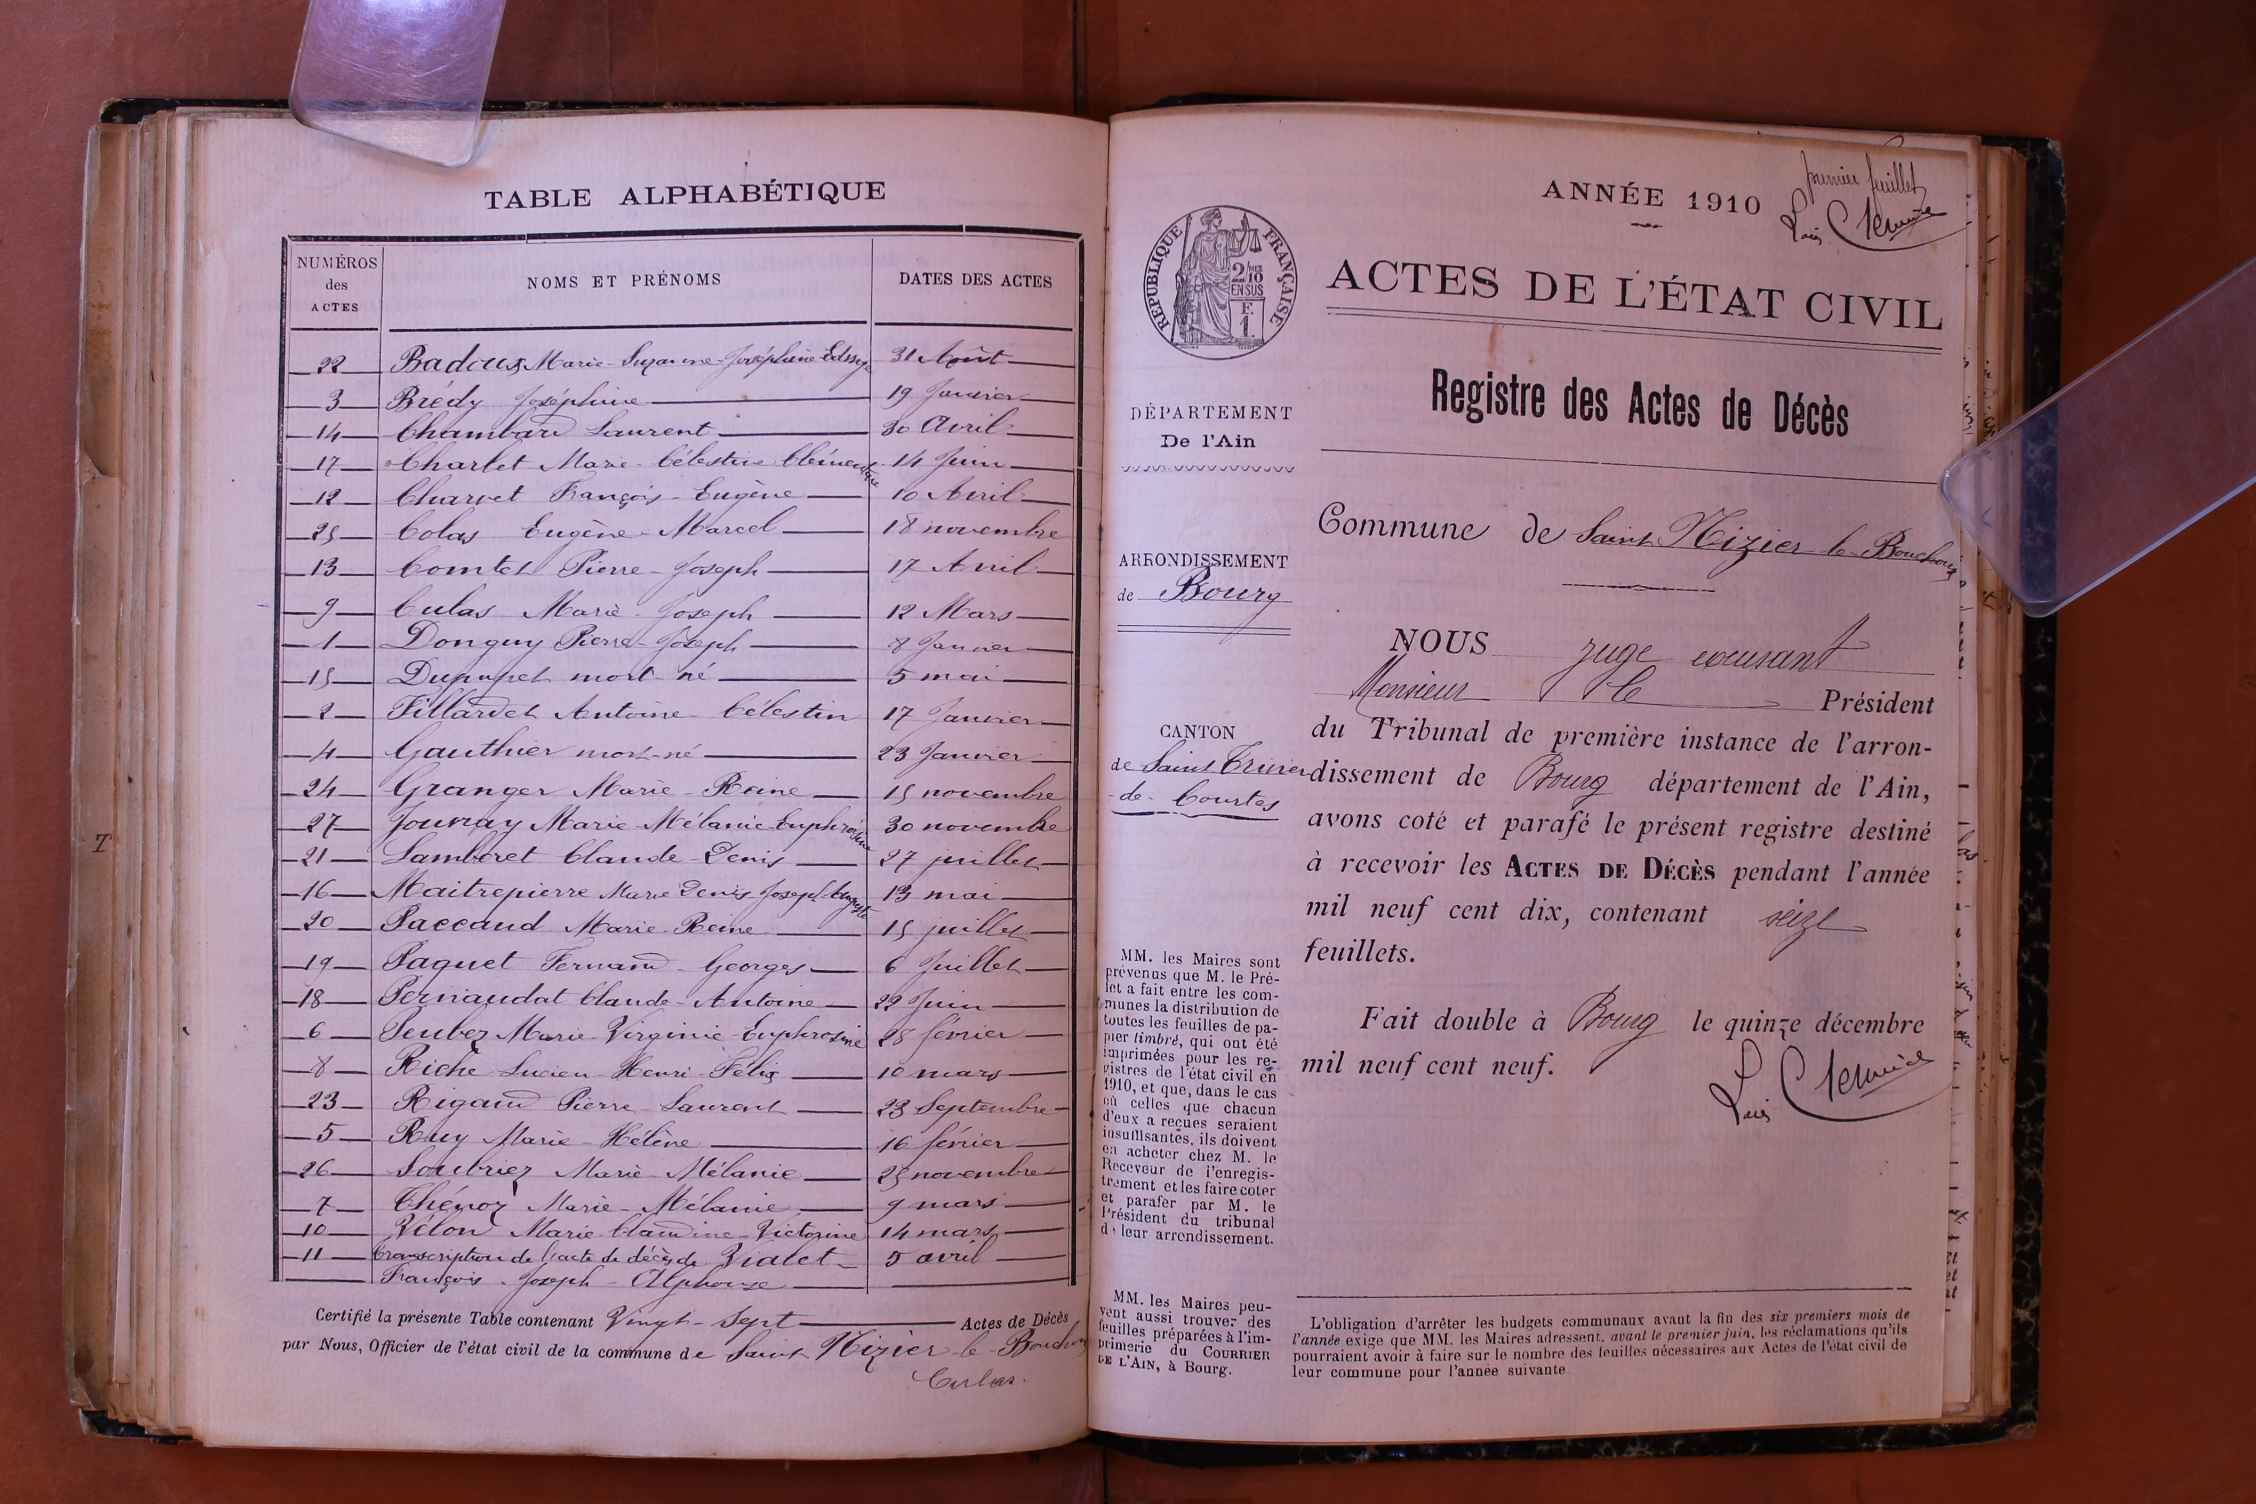 TABLE ALPHABÉTIQUE
NUMÉROS
des
ACTES
NOMS ET PRÉNOMS
DATES DES ACTES
22 Badoux Marie-Suzanne-Joséphine 31 Août
3 Brédy Joséphine 19 Janvier
14 Chambard Laurent 30 Avril
17 Charlet Marie-Célestine 14 Juin
12 Charvet François-Eugène 10 Avril
25 Colas Eugène-Marcel 18 novembre
13 Comtet Pierre-Joseph 17 Avril
9 Culas Marie-Joseph 12 Mars
1 Donguy Pierre-Joseph 8 Janvier
15 Dupupet mort-né 5 mai
2 Fillardet Antoine-Célestin 17 Janvier
4 Gauthier mort-né 23 Janvier
24 Granger Marie-Reine 15 novembre
27 Jouvray Marie-Mélanie-Euphrosine 30 novembre
21 Lamberet Claude-Denis 27 juillet
16 Maitrepierre Marie Denis-Joseph-Auguste 13 mai
20 Paccaud Marie-Reine 15 juillet
19 Paquet Fernand-Georges 6 Juillet
18 Pernaudat Claude-Antoine 22 Juin
6 Peubez Marie-Virginie-Euphrosine 28 février
8 Riche Lucien-Henri-Félix 10 mars
23 Rigaud Pierre-Laurent 23 Septembre
5 Ruy Marie-Hélène 16 février
26 Soubriez Marie-Mélanie 25 novembre
7 Thévoz Marie-Mélanie 9 mars
10 Vélon Marie-Claudine-Victorine 14 mars
11 Transcription de l'acte de décès de Vialet 5 avril
François-Joseph-Alphonse
Certifié la présente Table contenant Vingt-Sept Actes de Décès
par Nous, Officier de l'état civil de la commune de Saint Nizier-le-Bouchoux
Culas.
ANNÉE 1910
premier feuillet
RÉPUBLIQUE FRANÇAISE
2/10
EN SUS
F.
1
ACTES DE L'ÉTAT CIVIL
Registre des Actes de Décès
DÉPARTEMENT
De l'Ain
ARRONDISSEMENT
de Bourg
CANTON
de Saint Trivier
de Courtes
MM. les Maires sont
prévenus que M. le Pré-
fet a fait entre les com-
munes la distribution de
toutes les feuilles de pa-
pier timbré, qui ont été
imprimées pour les re-
gistres de l'état civil en
1910, et que, dans le cas
où celles que chacun
d'eux a reçues seraient
insuffisantes, ils doivent
en acheter chez M. le
Receveur de l'enregis-
trement et les faire coter
et parafer par M. le
Président du tribunal
de leur arrondissement.
MM. les Maires peu-
vent aussi trouver des
feuilles préparées à l'im-
primerie du COURRIER
DE L'AIN, à Bourg.
Commune de Saint Nizier-le-Bouchoux
NOUS juge excusant
Monsieur le Président
du Tribunal de première instance de l'arron-
dissement de Bourg département de l'Ain,
avons coté et parafé le présent registre destiné
à recevoir les ACTES DE DÉCÈS pendant l'année
mil neuf cent dix, contenant seize
feuillets.
Fait double à Bourg le quinze décembre
mil neuf cent neuf.
L'obligation d'arrêter les budgets communaux avant la fin des six premiers mois de
l'année exige que MM. les Maires adressent, avant le premier juin, les réclamations qu'ils
pourraient avoir à faire sur le nombre des feuilles nécessaires aux Actes de l'état civil de
leur commune pour l'année suivante